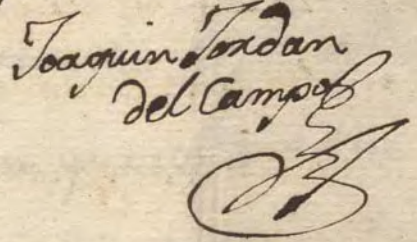 Joaquin Jordan
del Campo